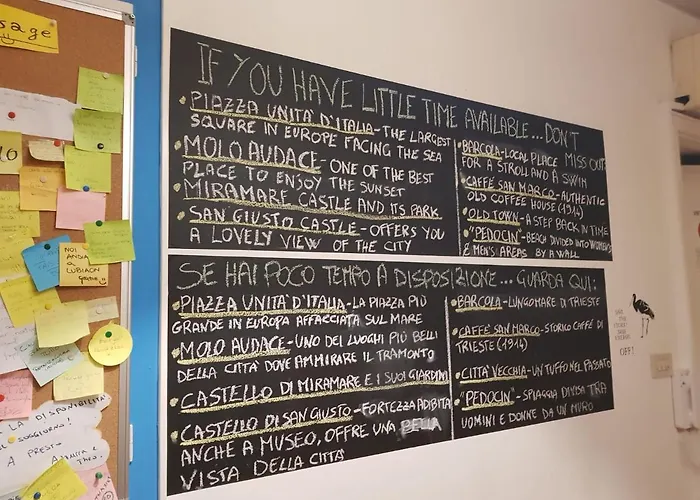 sage
NOI
ANDIA
a
LUBIACN
LA DISPONIBILITA'
SOGGIORNO!
A PRESTO
IF YOU HAVE LITTLE TIME AVAILABLE... DON'T
MISS OUT:
• PIAZZA UNITÀ D'ITALIA - THE LARGEST
SQUARE IN EUROPE FACING THE SEA
• MOLO AUDACE - ONE OF THE BEST
PLACE TO ENJOY THE SUNSET
• MIRAMARE CASTLE AND ITS PARK
• SAN GIUSTO CASTLE - OFFERS YOU
A LOVELY VIEW OF THE CITY
• BARCOLA - LOCAL PLACE
FOR A STROLL AND A SWIM
• CAFFÈ SAN MARCO - AUTHENTIC
OLD COFFEE HOUSE (1914)
• OLD TOWN - A STEP BACK IN TIME
• "PEDOCIN" - BEACH DIVIDED INTO WOMEN'S
& MEN'S AREAS BY A WALL
SE HAI POCO TEMPO A DISPOSIZIONE... GUARDA QUI:
• PIAZZA UNITA' D'ITALIA - LA PIAZZA PIÙ
GRANDE IN EUROPA AFFACCIATA SUL MARE
• MOLO AUDACE - UNO DEI LUOGHI PIÙ BELLI
DELLA CITTA' DOVE AMMIRARE IL TRAMONTO
• CASTELLO DI MIRAMARE E I SUOI GIARDINI
• CASTELLO DI SAN GIUSTO - FORTEZZA ADIBITA
ANCHE A MUSEO, OFFRE UNA BELLA
VISTA DELLA CITTÀ
• BARCOLA - LUNGOMARE DI TRIESTE
• CAFFÈ SAN MARCO - STORICO CAFFÈ DI
TRIESTE (1914)
• CITTÀ VECCHIA - UN TUFFO NEL PASSATO
• "PEDOCIN" - SPIAGGIA DIVISA TRA
UOMINI E DONNE DA UN MURO
OFF!